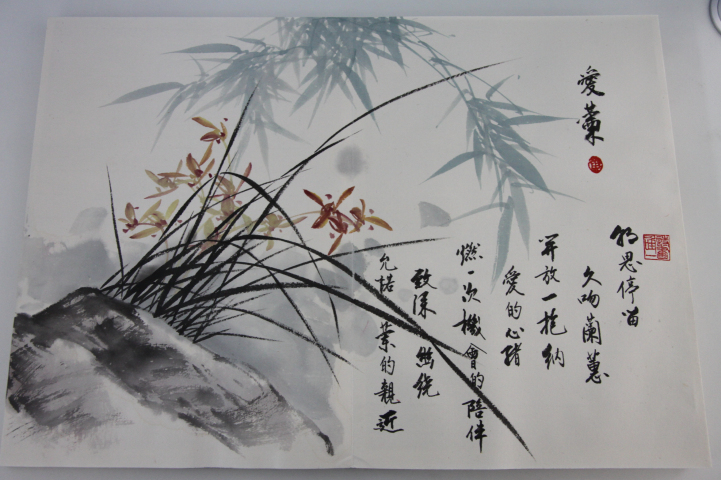 愛蘭
思停留
久吻蘭蕙
放一抱納
愛的心緒
燃一次機會的陪伴
致深繞
允諾 葉的親近